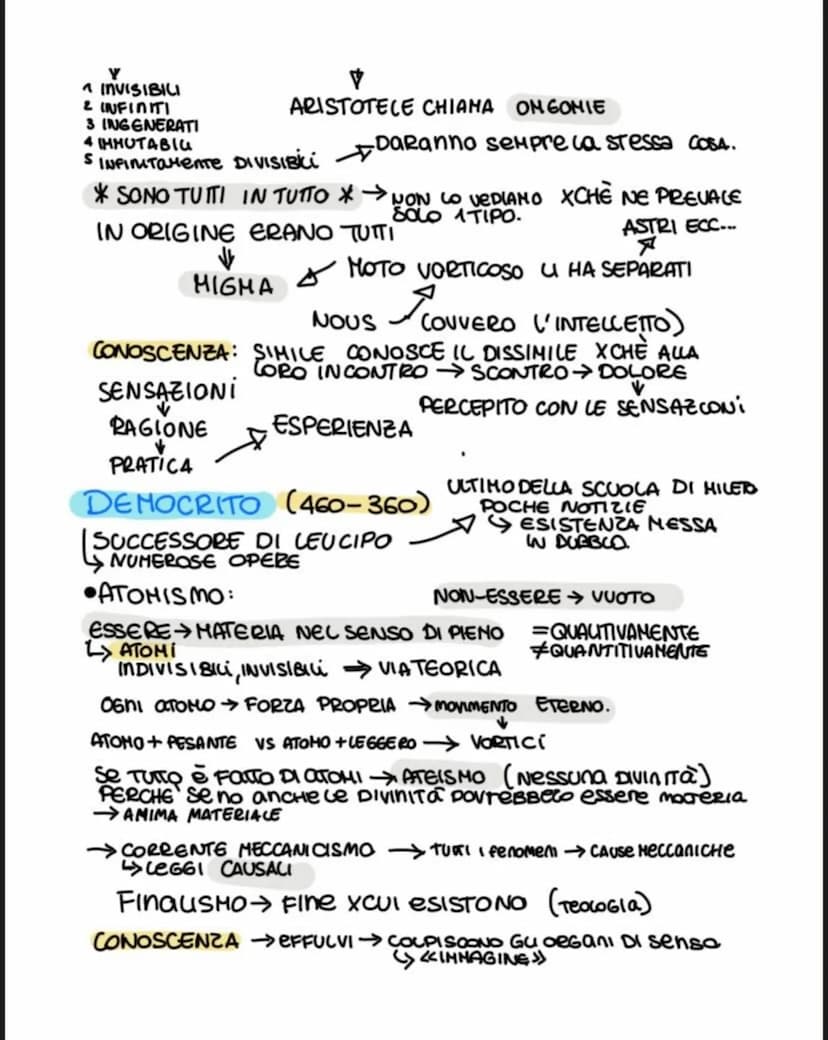 1 INVISIBILI
2 INFINITI
3 INGENERATI
4 IMMUTABILI
5 INFINITAMENTE DIVISIBILI
ARISTOTELE CHIAMA OMGOMIE
→ DARANNO SEMPRE LA STESSA COSA.
* SONO TUTTI IN TUTTO * → NON LO VEDIAMO XCHÈ NE PREVALE
SOLO 1 TIPO.
IN ORIGINE ERANO TUTTI
ASTRI ECC...
MIGMA
MOTO VORTICOSO LI HA SEPARATI
NOUS (OVVERO L'INTELLETTO)
CONOSCENZA: SIMILE CONOSCE IL DISSIMILE XCHÈ ALLA
LORO INCONTRO → SCONTRO → DOLORE
PERCEPITO CON LE SENSAZIONI
SENSAZIONI
RAGIONE
PRATICA
ESPERIENZA
DEMOCRITO (460-360)
SUCCESSORE DI LEUCIPO
↳ NUMEROSE OPERE
ULTIMO DELLA SCUOLA DI MILETO
POCHE NOTIZIE
↳ ESISTENZA MESSA
IN DUBBIO.
•ATOMISMO:
NON-ESSERE → VUOTO
ESSERE → MATERIA NEL SENSO DI PIENO
=QUALITIVAMENTE
≠QUANTITIVAMENTE
↳ ATOMI
INDIVISIBILI, INVISIBILI ⇒ VIA TEORICA
OGNI ATOMO → FORZA PROPRIA → MOVIMENTO ETERNO.
ATOMO + PESANTE VS ATOMO + LEGGERO → VORTICI
SE TUTTO È FATTO DI ATOMI → ATEISMO (NESSUNA DIVINITÀ)
PERCHÈ SE NO ANCHE LE DIVINITÀ DOVREBBERO ESSERE MATERIA
→ ANIMA MATERIALE
→ CORRENTE MECCANICISMO → TUTTI I FENOMENI → CAUSE MECCANICHE
↳ LEGGI CAUSALI
FINALISMO → FINE XCUI ESISTONO (TEOLOGIA)
CONOSCENZA → EFFULVI → COLPISCONO GLI ORGANI DI SENSO
↳ «IMMAGINE»